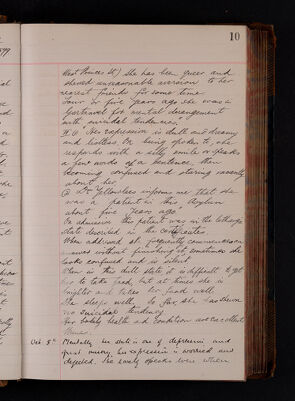 10
West Princes St) She has been queer and
shewed unreasonable aversion to her
nearest friends for some time
Four or five years ago she was in
Gartnavel for mental derangement
with suicidal tendencies."
"Her expression is dull and dreamy
and listless. On being spoken to, she
responds with a silly smile or speaks
a few words of a sentence, then
becoming confused and staring vacantly
about her.
Dr Yellowlees informs me that she
was a patient in this Asylum
about five years ago.
On admission this patient was in the lethargic
state described in the certificates
When addressed she frequently commences an
answer without finishing it, sometimes she
looks confused and is silent
When in this dull state it is difficult to get
her to take food, but at times she is
brighter and takes her food well.
She sleeps well. So far she has shewn
no suicidal tendency
Her bodily health and condition are excellent
Oct. 8th Mentally her state is one of depression and
great misery, his expression is worried and
dejected. She rarely speaks even when